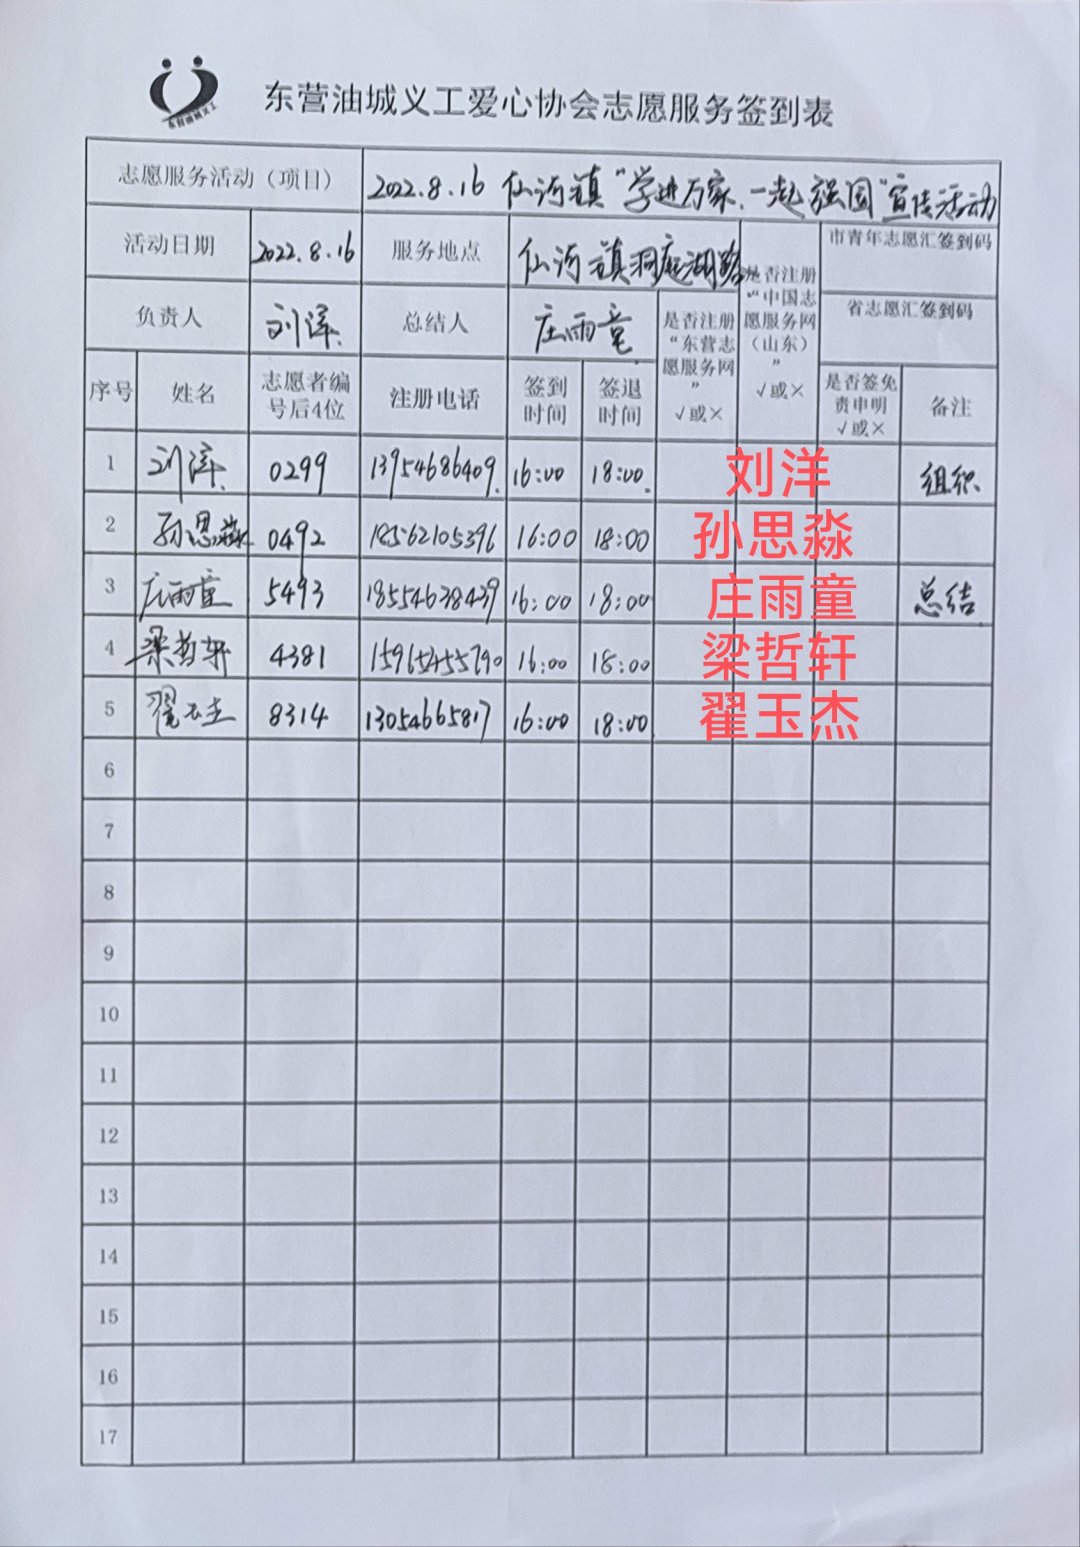 东营油城义工
东营油城义工爱心协会志愿服务签到表
志愿服务活动（项目） 2022.8.16 仙河镇“学进万家、一起强国”宣传活动
活动日期 2022.8.16 服务地点 仙河镇洞庭湖路 市青年志愿汇签到码
负责人 刘洋 总结人 庄雨童 省志愿汇签到码
是否注册“东营志愿服务网” √或×
是否注册“中国志愿服务网（山东）” √或×
序号 姓名 志愿者编号后4位 注册电话 签到时间 签退时间 是否签免责申明 √或× 备注
1 刘洋 0299 13954686409 16:00 18:00 刘洋 组织
2 孙思淼 0492 18562105396 16:00 18:00 孙思淼
3 庄雨童 5493 18554638439 16:00 18:00 庄雨童 总结
4 梁哲轩 4381 15965455790 16:00 18:00 梁哲轩
5 翟玉杰 8314 13054665817 16:00 18:00 翟玉杰
6
7
8
9
10
11
12
13
14
15
16
17